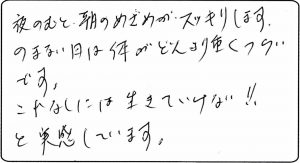 夜のむと、朝のめざめが、スッキリします。
のまない日は体がどんより重くつらい
です。
これなしには生きていけない!!
と実感しています。